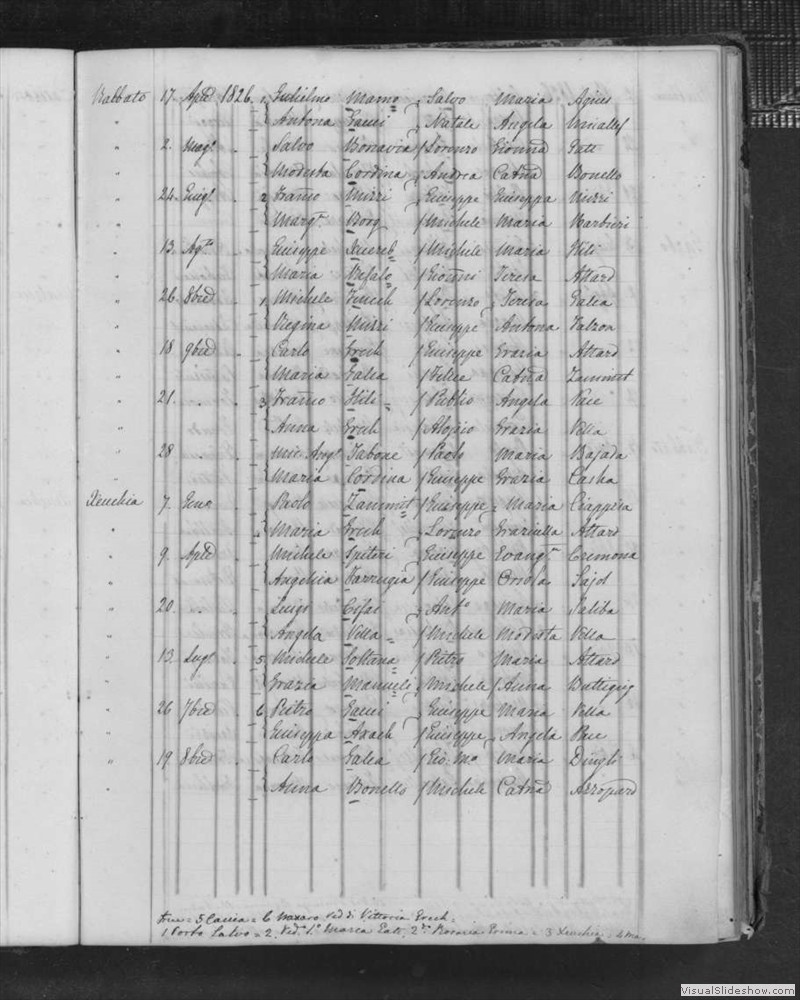 Rabbato 17. Aple 1826. 1. Gulielmo Mamo / Salvo Maria Agius
" Antona Gauci / Natale Angela Micallef
" 2. Magl. Salvo Bonavia / Lorenzo Gionna Gatt
" Modesta Cordina / Andrea Catna Bonello
" 24. Giugl. 2 Franco Mizzi / Giuseppe Giuseppa Mizzi
" Margta Borg / Michele Maria Barbieri
" 13. Agto Giuseppe Xuereb / Michele Maria Hili
" Maria Refalo / Gionni Teresa Attard
" 26. 8bre 1 Michele Fenech / Lorenzo Teresa Galea
" Virgina Mizzi / Giuseppe Antona Falzon
" 18. 9bre Carlo Grech / Giuseppe Grazia Attard
" Maria Galea / Felice Catna Zammit
" 21. 3 Franco Hili / Publio Angela Pace
" Anna Grech / Aloisio Grazia Vella
" 28 Mic. Angl Tabone / Paolo Maria Bajada
" Maria Cordina / Giuseppe Grazia Casha
Xeuchia 7. Gno Paolo Zammit / Giuseppe Maria Ciappira
" Maria Grech / Lorenzo Graziulla Attard
" 9. Aple Michele Spiteri / Giuseppe Evangta Cremona
" Angelica Farrugia / Giuseppe Orsola Sajd
" 20. Luigi Cefai / Anto Maria Saliba
" Angela Villa / Michele Modesta Vella
" 13. Lugl. 5. Michele Soltana / Pietro Maria Attard
" Grazia Manueli / Michele Anna Buttigieg
" 26 7bre 6 Pietro Gauci / Giuseppe Maria Vella
" Giuseppa Axach / Giuseppe Angela Pace
" 19. 8bre Carlo Galea / Gio: Ma Maria Dingli
" Anna Bonello / Michele Catna Azzopard
5 Caccia = 6 Nazaro Ved. di Vittoria Grech.
1 Porto Salvo = 2. Ved. 1. Maria Gatt, 2. Rosaria = 3 Xeuchia
VisualSlideshow.com